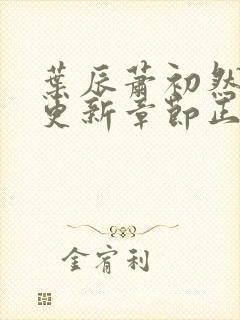 葉辰蕭初然
更新章節正
金宥利